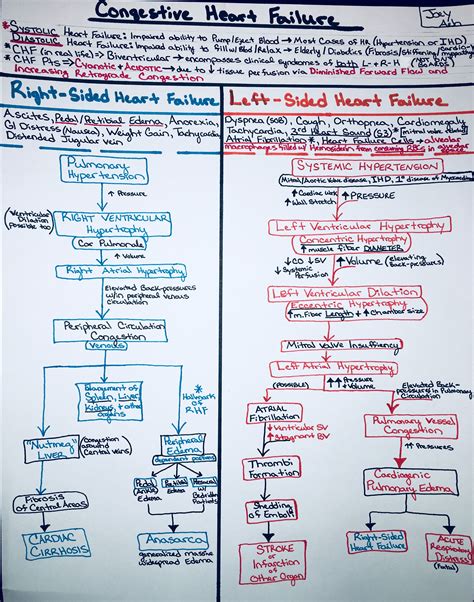 Congestive Heart Failure
Joey
* SYSTOLIC Heart Failure: Impaired ability to Pump/Eject Blood → Most Cases of HF (Hypertension or IHD)
* DIASTOLIC Heart Failure: Impaired ability to fill w/Blood/Relax → Elderly / Diabetics (Fibrosis/stiffening)
* CHF (in real life) => Biventricular → encompasses clinical syndromes of both L- + R-H
* CHF Pts => Cyanotic + Acidotic → due to ↓ tissue perfusion via Diminished Forward Flow and
Increasing Retrograde Congestion
Right-Sided Heart Failure
Ascites, Pedal/Pretibial Edema, Anorexia,
GI Distress (Nausea), Weight Gain, Tachycardia
Distended Jugular vein
Pulmonary
Hypertension
↑ Pressure
(Ventricular
Dilation
possible too)
RIGHT VENTRICULAR
Hypertrophy
(Cor Pulmonale)
↑ Volume
Right Atrial Hypertrophy
Elevated Back-pressures
w/in peripheral venous
circulation
Peripheral Circulation
Congestion
Venous
Enlargement of
Spleen, Liver,
Kidneys, + other
organs
* Hallmark
of
RHF
"Nutmeg"
LIVER
(Congestion
around
Central veins)
Peripheral
Edema
dependent portions
Pedal
(Ankles)
Edema
Pretibial
Edema
Presacral
w/ Bedridden
Patients
Fibrosis of
Central Areas
CARDIAC
CIRRHOSIS
Anasarca
generalized massive
widespread Edema
Left-Sided Heart Failure
Dyspnea (SOB), Cough, Orthopnea, Cardiomegaly
Tachycardia, 3rd Heart Sound (S3)
Atrial Fibrillation *, Heart Failure Cells → alveolar
macrophages filled w/ Hemosiderin from consuming RBCs
SYSTEMIC HYPERTENSION
Mitral/Aortic Valve disease, IHD, 1° disease of Myocardium
↑ Cardiac Work
↑ Wall Stretch
↑ PRESSURE
Left Ventricular Hypertrophy
Concentric Hypertrophy
↑ muscle fiber DIAMETER
↓ CO ↓ SV
↓ Systemic
Perfusion
↑ Volume (Elevating
Back-pressures)
Left Ventricular Dilation
Eccentric Hypertrophy
↑ m. fiber Length + ↑ chamber size
Mitral Valve Insufficency
Left Atrial Hypertrophy
(possible)
↑↑ Pressure
+ Volume
Elevated Back-
pressures in Pulmonary
Circulation
ATRIAL
Fibrillation
↓ Ventricular SV
↑ stagnant BV
Thrombi
Formation
Shedding
of Emboli
STROKE
or Infarction of
Other Organ
Pulmonary Vessel
Congestion
↑ Pressures
Cardiogenic
Pulmonary Edema
Right-Sided
Heart Failure
ACUTE
Respiratory
Distress
(Fatal)